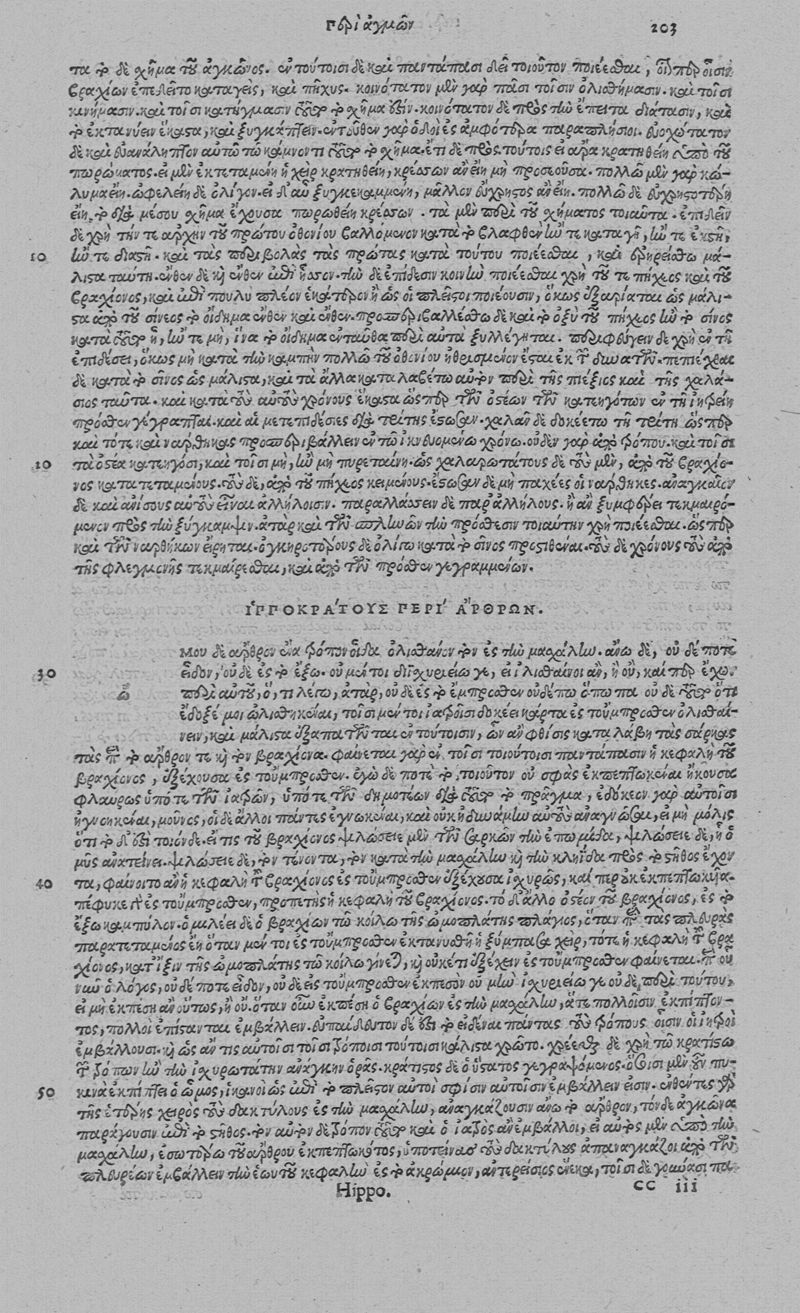 περὶ ἀγμῶν 203
τα τὸ δὲ σχῆμα τοῦ ἀγκῶνος. ἐν τούτοισι δὲ καὶ παντάπασι δεῖ τοιοῦτον ποιέεσθαι,
βραχίων ἐπεδεῖτο καταγεὶς, καὶ πῆχυς. κοινότατον μὲν γὰρ πᾶσι τοῖσιν ὀλισθήμασιν. καὶ τοῖσι
κινήμασιν. καὶ τοῖσι κατήγμασιν τοῦτο τὸ σχῆμά ἐστιν. κοινότατον δὲ πρὸς τὴν ἔπειτα διάτασιν, καὶ
τὸ ἐκτανύειν ἕκαστα, καὶ ξυγκάμπτειν. ἐντεῦθεν γὰρ ὁδοὶ ἐς ἀμφότερα παραπλήσιοι. εὐοχώτατον
δὲ καὶ εὐανάληπτον αὐτῷ τῷ κάμνοντι τοῦτο τὸ σχῆμα. ἔτι δὲ πρὸς τούτοις εἰ ἄρα κρατηθείη ὑπὸ τοῦ
πωρώματος. εἰ μὲν ἐκτεταμένη ἡ χεὶρ κρατηθείη, κρέσσων ἂν εἴη μὴ προσεοῦσα. πολλῷ μὲν γὰρ κώ-
λυμα εἴη. ὠφελείη δὲ ὀλίγον. εἰ δ' αὖ ξυγκεκαμμένη, μᾶλλον εὔχρηστος ἂν εἴη. πολλῷ δὲ εὐχρηστοτέρη
εἴη, τὸ διὰ μέσου σχῆμα ἔχουσα πωρωθείη κρέσσων. τὰ μὲν περὶ τοῦ σχήματος τοιαῦτα. ἐπιδεῖν
δὲ χρὴ τήν τε ἀρχὴν τοῦ πρώτου ὀθονίου βαλλόμενον κατὰ τὸ βλαφθὲν ἤν τε καταγῇ, ἤν τε ἐκστῇ,
10 ἤν τε διαστῇ. καὶ τὰς περιβολὰς τὰς πρώτας κατὰ τοῦτο ποιέεσθαι, καὶ ἐρηρείσθω μά-
λιστα ταύτῃ. ἔνθεν δὲ καὶ ἔνθεν ἐπὶ ἧσσον. τὴν δὲ ἐπίδεσιν κοινὴν ποιέεσθαι χρὴ τοῦ τε πήχεος καὶ τοῦ
βραχίονος, καὶ ἐπὶ πουλὺ πλέον ἑκάτερον ἢ ὡς οἱ πλεῖστοι ποιέουσιν, ὅκως ἐξαρίαται ὡς μάλι-
στα ἀπὸ τοῦ σίνεος τὸ οἴδημα ἔνθεν καὶ ἔνθεν. προσπεριβαλλέσθω δὲ καὶ τὸ ὀξὺ τοῦ πήχεος ἢν τὸ σίνος
κατὰ τοῦτο ᾖ, ἤν τε μὴ, ἵνα τὸ οἴδημα ἐνταῦθα περὶ αὐτὰ ξυλλέγηται. περιφεύγειν δὲ χρὴ ἐν τῇ
ἐπιδέσει, ὅκως μὴ κατὰ τὴν καμπὴν πολλὸν τοῦ ὀθονίου ἠθροισμένον ἔσται ἐκ τῶν δυνατῶν. πεπιέχθαι
δὲ κατὰ τὸ σῖνος ὡς μάλιστα, καὶ τὰ ἄλλα καταλαβέτω αὐτὸν περὶ τῆς πιέξιος καὶ τῆς χαλά-
σιος ταὐτά. καὶ κατὰ τοὺς αὐτοὺς χρόνους ἕκαστα ὥσπερ τῶν ὀστέων τῶν κατεηγότων ἐν τῇ ἰητρείῃ
πρόσθεν γέγραπται. καὶ αἱ μετεπιδέσιες διὰ τρίτης ἔστωσαν. χαλᾶν δὲ δοκέετω τῇ τρίτῃ ὥσπερ
καὶ τότε καὶ νάρθηκας προσπεριβάλλειν ἐν τῷ ἱκνευμένῳ χρόνῳ. οὐδὲν γὰρ ἀπὸ τρόπου. καὶ τοῖσι
20 τὰ ὀστέα κατεηγόσι, καὶ τοῖσι μὴ, ἢν μὴ πυρεταίνῃ. ὡς χαλαρωτάτους δὲ τοὺς μὲν, ἀπὸ τοῦ βραχίο-
νος κατατεταμένους. τοὺς δὲ, ἀπὸ τοῦ πήχεος κειμένους. ἔστωσαν δὲ μὴ παχέες οἱ νάρθηκες. ἀναγκαῖον
δὲ καὶ ἀνίσους αὐτοὺς εἶναι ἀλλήλοισιν. παραλλάσσειν δὲ παρ' ἀλλήλους. ᾗ ἂν ξυμφέρῃ τεκμαιρό-
μενον πρὸς τὴν ξύγκαμψιν. ἀτὰρ καὶ τῶν σπληνῶν τὴν πρόσθεσιν τοιαύτην χρὴ ποιέεσθαι. ὥσπερ
καὶ τῶν ναρθήκων εἴρηται. ὀγκηροτέρους δὲ ὀλίγῳ κατὰ τὸ σίνος προστιθέναι. τοὺς δὲ χρόνους τοὺς ἀπὸ
τῆς φλεγμονῆς τεκμαίρεσθαι, καὶ ἀπὸ τῶν πρόσθεν γεγραμμένων.
ἹΠΠΟΚΡΆΤΟΥΣ ΠΕΡῚ ἌΡΘΡΩΝ.
Μου δὲ ἄρθρον ἕνα τρόπον οἶδα ὀλισθάνον τὸν ἐς τὴν μασχάλην. ἄνω δὲ, οὐδέποτε
30 εἶδον, οὐδὲ ἐς τὸ ἔξω. οὐ μέντοι διϊσχυριείω γε, εἰ ὀλισθαίνοι ἂν, ἢ οὔ, καίπερ ἔχων
ὦ περὶ αὐτοῦ, ὅ, τι λέγω, ἀτὰρ, οὐδὲ ἐς τὸ ἔμπροσθεν οὐδέπω ὄπωπα οὐδὲ τοῦτο ὅτι
ἔδοξέ μοι ὠλισθηκέναι, τοῖσι μέντοι ἰητροῖσι δοκέει κάρτα ἐς τοὔμπροσθεν ὀλισθαί-
νειν, καὶ μάλιστα ἐξαπατῶνται ἐν τούτοισιν, ὧν ἂν φθίσις καταλάβῃ τὰς σάρκας
τὰς περὶ τὸ ἄρθρον τε καὶ τὸν βραχίονα. φαίνεται γὰρ ἐν τοῖσι τοιούτοισι παντάπασιν ἡ κεφαλὴ τοῦ
βραχίονος, ἐξέχουσα ἐς τοὔμπροσθεν. ἐγὼ δέ ποτε τὸ τοιοῦτον οὐ φὰς ἐκπεπτωκέναι ἤκουσα
φλαύρως ὑπό τε τῶν ἰητρῶν, ὑπό τε τῶν δημοτέων διὰ τοῦτο τὸ πρᾶγμα, ἐδόκεον γὰρ αὐτοῖσι
ἠγνοηκέναι, μοῦνος, οἱ δὲ ἄλλοι πάντες ἐγνωκέναι, καὶ οὐκ ἠδυνάμην αὐτοὺς ἀναγνῶσαι, εἰ μὴ μόλις
ὅτι τὸ δ' ἐστὶ τοιόνδε. εἴ τις τοῦ βραχίονος ψιλώσειε μὲν τῶν σαρκῶν τὴν ἐπωμίδα, ψιλώσειε δὲ, ᾗ ὁ
μῦς ἀνατείνει. ψιλώσειε δὲ, τὸν τένοντα, τὸν κατὰ τὴν μασχάλην καὶ τὴν κληῖδα πρὸς τὸ στῆθος ἔχον
40 τα, φαίνοιτο ἂν ἡ κεφαλὴ τοῦ βραχίονος ἐς τοὔμπροσθεν ἐξέχουσα ἰσχυρῶς, καί περ οὐκ ἐκπεπτωκυῖα.
πέφυκε γὰρ ἐς τοὔμπροσθεν, προπετὴς ἡ κεφαλὴ τοῦ βραχίονος. τὸ δ' ἄλλο ὀστέον τοῦ βραχίονος, ἐς τὸ
ἔξω καμπύλον. ὁμιλέει δὲ ὁ βραχίων τῷ κοίλῳ τῆς ὠμοπλάτης πλάγιος, ὅταν παρὰ τὰς πλευρὰς
παρατεταμένος ἔῃ ὅταν μέν τοι ἐς τοὔμπροσθεν ἐκτανυσθῇ ἡ ξύμπασα χεὶρ, τότε ἡ κεφαλὴ τοῦ βρα
χίονος, κατ' ἴξιν τῆς ὠμοπλάτης τῷ κοίλῳ γίνεται, καὶ οὐκέτι ἐξέχειν ἐς τοὔμπροσθεν φαίνεται. περὶ οὗ
νῦν ὁ λόγος, οὐδέποτε εἶδον, οὐδὲ εἰς τοὔμπροσθεν ἐκπεσὸν οὐ μὴν ἰσχυριείω γε οὐδὲ, περὶ τούτου,
εἰ μὴ ἐκπέσῃ ἂν οὕτως, ἢ οὔ. ὅταν οὖν ἐκπέσῃ ὁ βραχίων ἐς τὴν μασχάλην, ἅτε πολλοῖσιν ἐκπίπτον-
τος, πολλοὶ ἐπίστανται ἐμβάλλειν. εὐπαίδευτον δέ ἐστι τὸ εἰδέναι πάντας τοὺς τρόπους οἷσιν οἱ ἰητροὶ
ἐμβάλλουσι. καὶ ὡς ἄν τις αὐτοῖσι τοῖσι τρόποισι τούτοισι κάλλιστα χρῷτο. χρέεσθαι δὲ χρὴ τῷ κρατίστῳ
τῶν τρόπων ἢν τὴν ἰσχυροτάτην ἀνάγκην ὁρᾷς. κράτιστος δὲ ὁ ὕστατος γεγραψόμενος. ὁκόσοισι μὲν οὖν πυ-
50 κινὰ ἐκπίπτει ὁ ὦμος, ἱκανοὶ ὡς ἐπὶ τὸ πλεῖστον αὐτοὶ σφίσιν αὐτοῖσιν ἐμβάλλειν εἰσίν. ἐνθέντες γὰρ
τῆς ἑτέρης χειρὸς τοὺς δακτύλους ἐς τὴν μασχάλην, ἀναγκάζουσιν ἄνω τὸ ἄρθρον, τόν δε ἀγκῶνα
παράγουσιν ἐπὶ τὸ στῆθος. τὸν αὐτὸν δὲ τρόπον τοῦτο καὶ ὁ ἰητρὸς ἂν ἐμβάλλοι, εἰ αὐτὸς μὲν ὑπὸ τὴν
μασχάλην, ἐσωτέρω τοῦ ἄρθρου ἐκπεπτωκότος, ὑποτείνας τοὺς δακτύλους ἀπαναγκάζοι ἀπὸ τῶν
πλευρέων ἐμβάλλειν τὴν ἑωυτοῦ κεφαλὴν ἐς τὸ ἀκρώμιον, ἀντερείσιος ἕνεκα, τοῖσι δὲ γούνασι πα
Hippo. CC iii